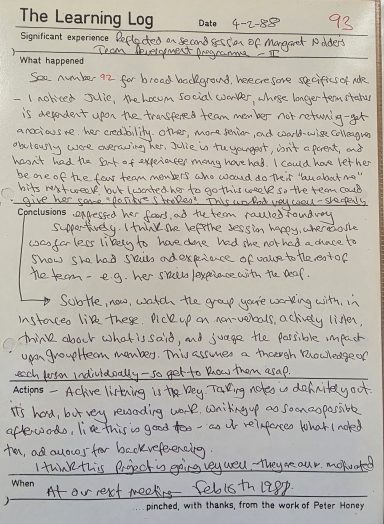 The Learning Log
Date 4-2-88
93
Significant experience Reflected on second session of Margaret
Team Development programme - II
What happened
See number 92 for broad background, here are some specifics of note
- I noticed Julie, the locum social worker, whose longer term status
is dependent upon the transferred team member not returning - get
anxious re. her credibility. Other, more senior, and world-wise colleagues
obviously were overawing her. Julie is the youngest, isn't a parent, and
hasn't had the sort of experiences many have had. I could have let her
be one of the four team members who would do their "all about me"
bits next week, but I wanted her to go this week so the team could
give her some "positive strokes". This worked very well - she fully
Conclusions expressed her fears, and the team rallied round very
supportively. I think she left the session happy, whereas she
was far less likely to have done had she not had a chance to
show she had skills and experience of value to the rest of
the team - e.g. her skills/experience with the Deaf.
Subtle, now, watch the group you're working with, in
instances like these. Pick up on non-verbals, actively listen,
think about what is said, and judge the possible impact
upon group/team members. This assumes a thorough knowledge of
each person individually - so get to know them asap.
Actions - Active listening is the key. Taking notes is definitely out.
It's hard, but very rewarding work. Writing up as soon as possible
afterwards, like this is good too - as it reinforces what I noted
then, and allows for back referencing.
I think this project is going very well - they're all motivated
When
At our next meeting - Feb 16th 1988.
...pinched, with thanks, from the work of Peter Honey